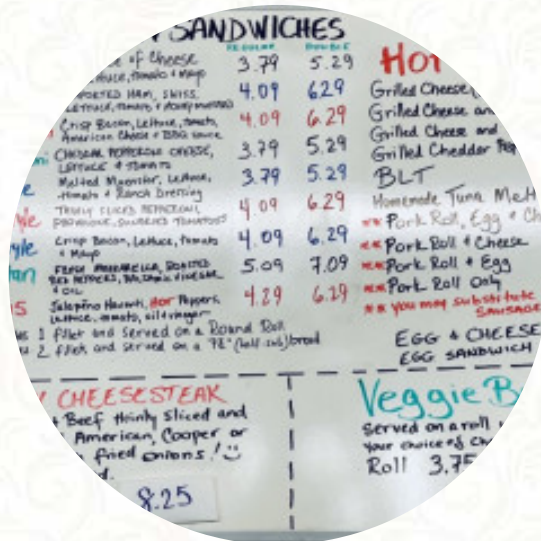 SANDWICHES
REGULAR DOUBLE
of Cheese 3.79 5.29
Lettuce, tomato & Mayo
HAM, SWISS, 4.09 6.29
LETTUCE, TOMATO &
Crisp Bacon, Lettuce, tomato, 4.09 6.29
American Cheese & BBQ sauce
CHEDDAR PEPPERONI CHEESE, 3.79 5.29
LETTUCE & TOMATO
Melted Muenster, Lettuce, 3.79 5.29
tomato & Ranch Dressing
THINLY SLICED PEPPERONI, 4.09 6.29
PROVOLONE, SUNDRIED TOMATOES
Crisp Bacon, Lettuce, Tomato 4.09 6.29
& Mayo
FRESH MOZZARELLA, ROASTED 5.09 7.09
RED PEPPERS, BALSAMIC VINEGAR
& OIL
Jalapeño Havarti, Hot Peppers, 4.29 6.29
Lettuce, tomato, oil & vinegar
1 filet and served on a Round Roll
2 filets and served on a bread
Hot
Grilled Cheese,
Grilled Cheese and
Grilled Cheese and
Grilled Cheddar
BLT
Homemade Tuna Melt
** Pork Roll, Egg & Ch
** Pork Roll & Cheese
** Pork Roll & Egg
** Pork Roll Only
** you may substitute
SAUSAGE
EGG & CHEESE
EGG SANDWICH
CHEESESTEAK
Beef thinly sliced and
American, Cooper or
fried onions! :)
8.25
Veggie B
Served on a roll
your choice of Ch
Roll 3.75